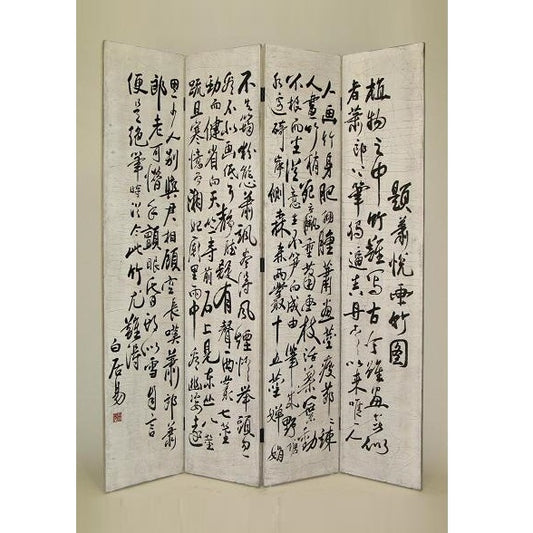 題蕭悅画竹图
植物之中竹難寫古今雖画無似
者蕭郎下筆獨逼真丹青以来唯一人
人画竹身肥拥腫蕭画莖瘦節節竦
人畫竹梢死羸垂蕭画枝活葉葉動
不根而生從意生不笋而成由筆成野塘
水邊碕岸側森森兩叢十五莖嬋娟
不失筠粉態蕭颯尽得風煙情舉頭忽
看不似画低耳静聴疑有聲西叢七莖
勁而健省向天竺寺前石上見东丛八莖
疏且寒憶曾湘妃廟里雨中看幽姿遠
思少人别與君相顧空長嘆蕭郎蕭
郎老可惜手顫眼昏頭似雪自言
便是绝筆時從今此竹尤難得
白居易